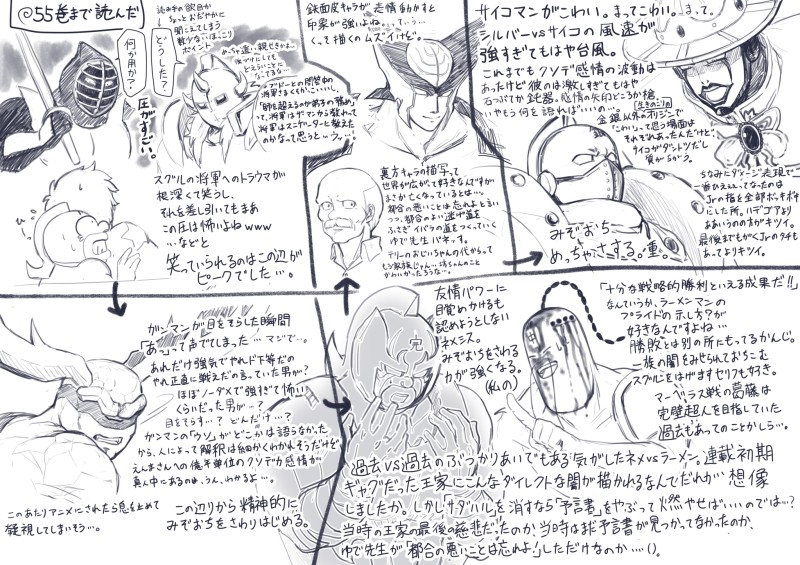 ◎55巻まで読んだ
どうした？
何か用か？
圧がすごい。
スグルの将軍へのトラウマが
根深くて笑うし、
それを差し引いてもまあ
この圧は怖いよねwww
…などと
笑っていられるのはこの辺が
ピークでした…。
読み手の欲目か
ちょっとおだやかに
聞こえてしまう
数少ないほっこり
ポイント
鉄面皮キャラが表情動かすと
印象が強いよねって。ってぃ…う…
くっそ描くのムズイけど。
裏方キャラの描写って
世界が広がって好きなんですが
まさか亡くなっているとは…。
都合の悪いことは忘れよと言い
つつ、都合のよい逃げ道を
ふさぎイバラの道をつっていく
ゆで先生パネェ。
テリーのおじいちゃんの代からって
もう家族じゃん…坊ちゃんのこと
かわいかったろうな…
サイコマンがこわい。まってこわい。まって。
シルバーvsサイコの風速が
強すぎてもはや台風。
これまでもクソデカ感情の波動は
あったけど彼のは激しすぎてもはや
石つぶてか鈍器。感情の矢印どころか槍。
いやもう何を語ればいいの…。
金銀以外のオリジンで
「こわい」って思う場面は
それぞれあったんだけど、
サイコがダントツだし
質が5がう。
ちなみにダメージ表現で
一番ひえええってなったのは
Jrの指を全部ボッキボキ
にした所。ハデゴアより
ああいうののがキツイ。
最後までもがくJrのタチも
あってよりキツイ。
みぞおち
めっちゃさする。重。
ガンマンが目をそらした瞬間
「あっ」って声でてしまった…マジで…。
あれだけ強気でやれド下等だの
やれ正直に戦えだの言っていた男が？
ほぼノーダメで強すぎて怖い
くらいだった男が…？
目をそらす…？どんだけ…？
ガンマンの「ウソ」がどこかは語らなかった
から、人によって解釈は細かくわかれそうだけど
えんまさんへの億千単位のクソデカ感情が
真ん中にあるのは、うん、わかるよ…。
このあたりアニメにされたら息をとめて
凝視してしまいそう…。
この辺りから精神的に
みぞおちをさわりはじめる。
友情パワーに
目覚めかけるも
認めようとしない
ネメシス。
みぞおちをさわる
力が強くなる。
(私の)
「十分な戦略的勝利といえる成果だ!!」
なんていうか、ラーメンマンの
プライドの示し方？が
好きなんですよね…
勝敗とは別の所にもってるかんじ。
一族の闇をみせられておちこむ
スグルをはげますセリフも好き。
マーベラス戦の葛藤は
完璧超人を目指していた
過去もあってのことかしら…。
過去vs過去のぶつかりあいでもある気がしたネメvsラーメン。連載初期
ギャグだった王家にこんなダイレクトな闇が描かれるなんてだれか…想像
しましたか。しかし「サダハル」を消すなら「予言書」をやぶって燃やせばいいのでは…？
当時の王家の最後の慈悲だったのか、当時はまだ予言書が見つかってなかったのか、
ゆで先生が「都合の悪いことは忘れよ！」しただけなのか…().